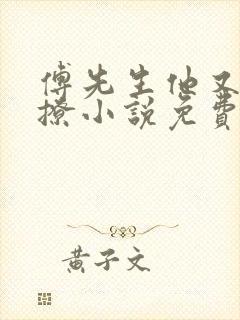 傅先生他又
撩小說免費
黃子文